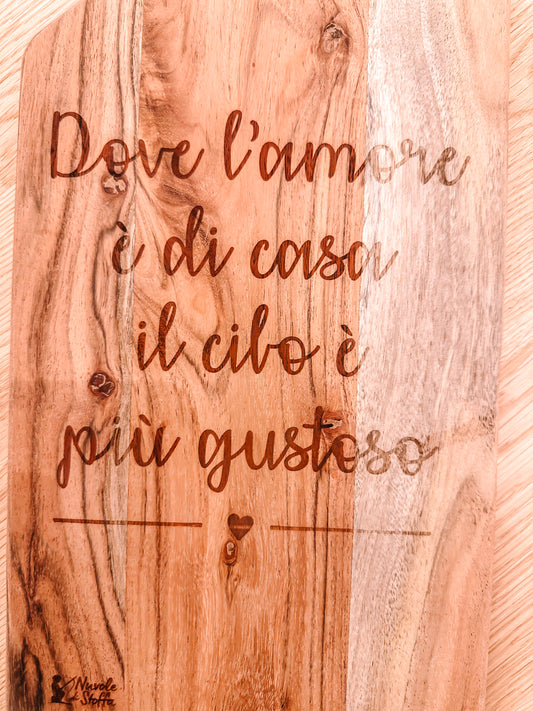 Dove l'amore
è di casa
il cibo è
più gustoso
Nuvole
di Stoffa